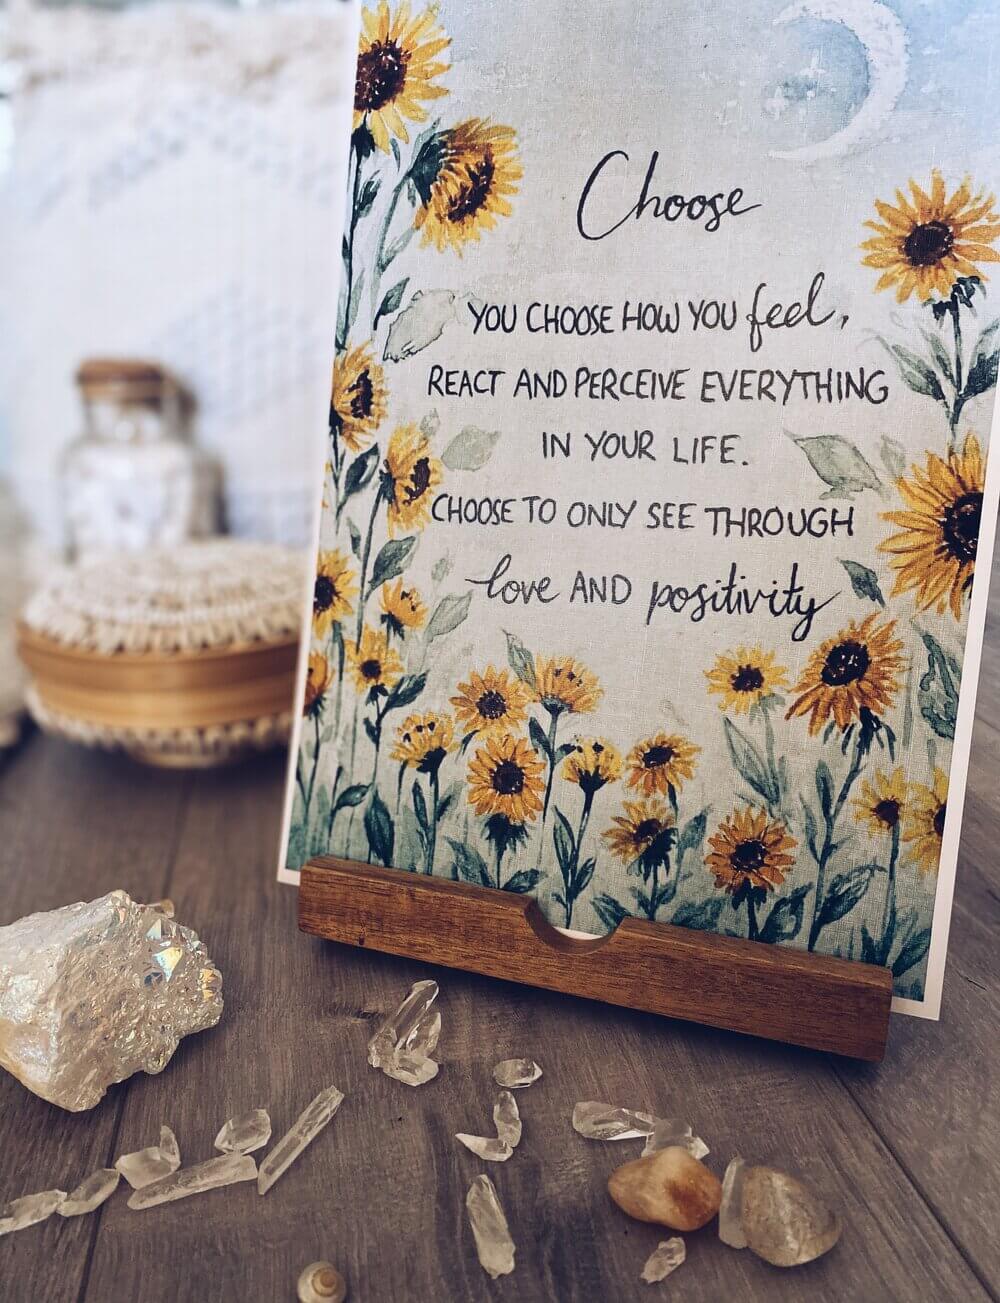 Choose
YOU CHOOSE HOW YOU feel,
REACT AND PERCEIVE EVERYTHING
IN YOUR LIFE.
CHOOSE TO ONLY SEE THROUGH
love AND positivity